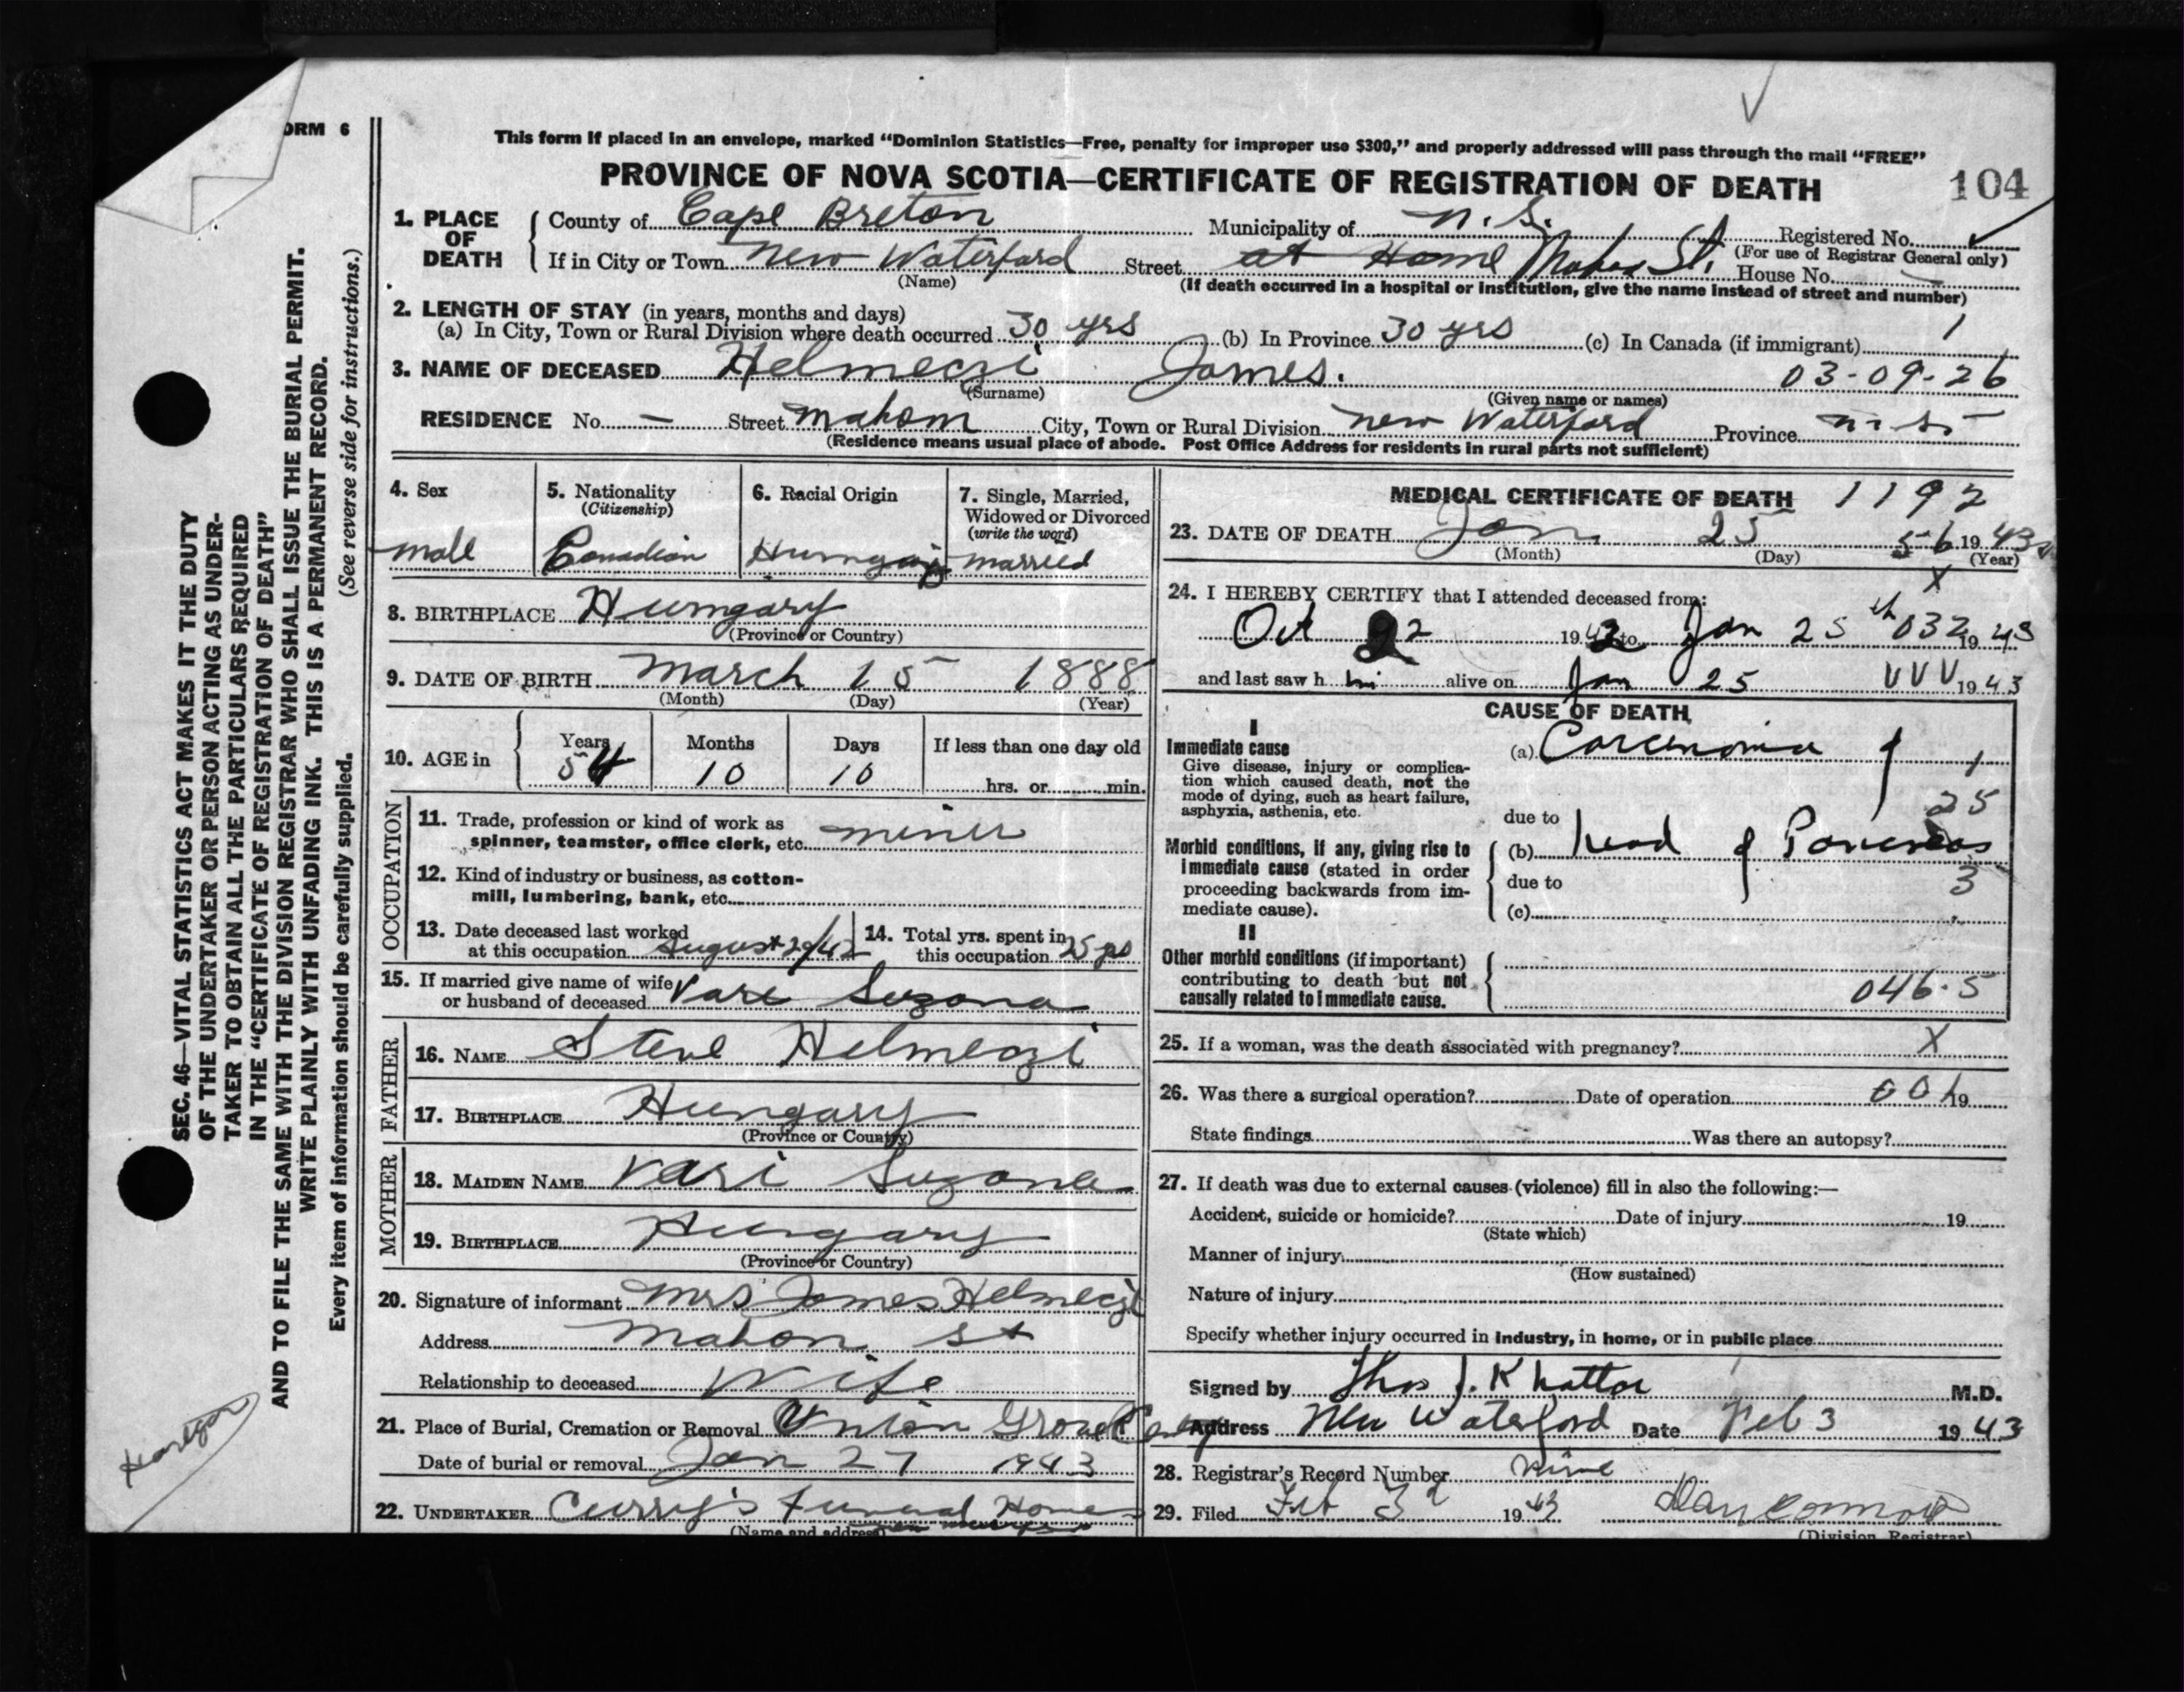 ORM 6
This form if placed in an envelope, marked “Dominion Statistics—Free, penalty for improper use $300,” and properly addressed will pass through the mail “FREE”
PROVINCE OF NOVA SCOTIA—CERTIFICATE OF REGISTRATION OF DEATH 104
1. PLACE OF DEATH County of Cape Breton Municipality of N.S. Registered No.
(For use of Registrar General only)
If in City or Town New Waterford Street at Home St. House No. —
(Name) (If death occurred in a hospital or institution, give the name instead of street and number)
2. LENGTH OF STAY (in years, months and days)
(a) In City, Town or Rural Division where death occurred 30 yrs (b) In Province 30 yrs (c) In Canada (if immigrant) 1
3. NAME OF DECEASED Helmeczi James. 03-09-26
(Surname) (Given name or names)
RESIDENCE No. — Street Mahon City, Town or Rural Division New Waterford Province N.S.
(Residence means usual place of abode. Post Office Address for residents in rural parts not sufficient)
4. Sex
male
5. Nationality
(Citizenship)
Canadian
6. Racial Origin
7. Single, Married,
Widowed or Divorced
(write the word)
married
8. BIRTHPLACE Hungary
(Province or Country)
9. DATE OF BIRTH March 15 1888
(Month) (Day) (Year)
10. AGE in Years Months Days If less than one day old
54 10 10 hrs. or min.
OCCUPATION
11. Trade, profession or kind of work as
spinner, teamster, office clerk, etc. miner
12. Kind of industry or business, as cotton-
mill, lumbering, bank, etc.
13. Date deceased last worked
at this occupation August 29/42
14. Total yrs. spent in
this occupation 25 yrs
15. If married give name of wife
or husband of deceased Vari Suzana
FATHER
16. NAME Steve Helmeczi
17. BIRTHPLACE Hungary
(Province or Country)
MOTHER
18. MAIDEN NAME Vari Suzana
19. BIRTHPLACE Hungary
(Province or Country)
20. Signature of informant Mrs James Helmeczi
Address Mahon St
Relationship to deceased Wife
21. Place of Burial, Cremation or Removal Union Grove
Date of burial or removal Jan 27 1943
22. UNDERTAKER Curry's Funeral Home
(Name and address)
MEDICAL CERTIFICATE OF DEATH 1192
23. DATE OF DEATH Jan. 25 56 1943
(Month) (Day) (Year)
X
24. I HEREBY CERTIFY that I attended deceased from:
Oct 22 1942 to Jan 25th 032 1943
and last saw h im alive on Jan 25 VVV 1943
CAUSE OF DEATH
I
Immediate cause
Give disease, injury or complica-
tion which caused death, not the
mode of dying, such as heart failure,
asphyxia, asthenia, etc.
(a) Carcinoma of 1
25
due to
Morbid conditions, if any, giving rise to
immediate cause (stated in order
proceeding backwards from im-
mediate cause).
(b) head of Pancreas
due to 3
(c)
II
Other morbid conditions (if important)
contributing to death but not
causally related to immediate cause.
046.5
25. If a woman, was the death associated with pregnancy? X
26. Was there a surgical operation? Date of operation 19
State findings Was there an autopsy?
27. If death was due to external causes (violence) fill in also the following:—
Accident, suicide or homicide? Date of injury 19
(State which)
Manner of injury
(How sustained)
Nature of injury
Specify whether injury occurred in industry, in home, or in public place
Signed by Thos J. M.D.
Address New Waterford Date Feb 3 1943
28. Registrar's Record Number nine
29. Filed Feb 3 1943
(Division Registrar)
SEC. 46—VITAL STATISTICS ACT MAKES IT THE DUTY
OF THE UNDERTAKER OR PERSON ACTING AS UNDER-
TAKER TO OBTAIN ALL THE PARTICULARS REQUIRED
IN THE “CERTIFICATE OF REGISTRATION OF DEATH”
AND TO FILE THE SAME WITH THE DIVISION REGISTRAR WHO SHALL ISSUE THE BURIAL PERMIT.
WRITE PLAINLY WITH UNFADING INK. THIS IS A PERMANENT RECORD.
Every item of information should be carefully supplied. (See reverse side for instructions.)